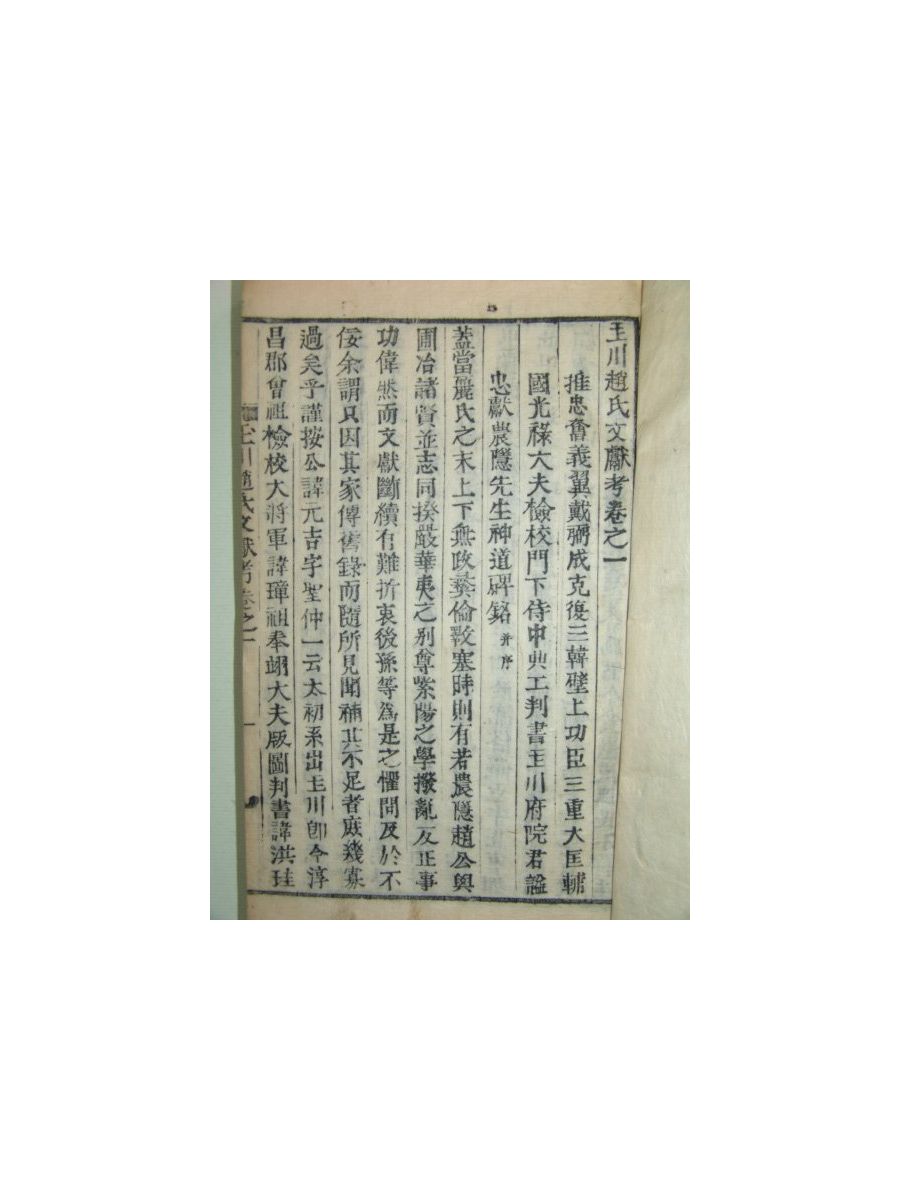 玉川趙氏文獻考卷之一
推忠奮義翼戴弼成克復三韓壁上功臣三重大匡輔
國光祿大夫檢校門下侍中典工判書玉川府院君謚
忠獻農隱先生神道碑銘 幷序
蓋當麗氏之末上下無政彛倫斁塞時則有若農隱趙公與
圃冶諸賢並志同揆嚴華夷之別尊紫陽之學撥亂反正事
功偉然而文獻斷續有難折衷後孫等爲是之懼問及於不
佞余謂只因其家傳舊錄而隨所見聞補其不足者庶幾寡
過矣乎謹按公諱元吉字聖仲一云太初系出玉川卽今淳
昌郡曾祖檢校大將軍諱璋祖奉翊大夫版圖判書諱洪珪
玉川趙氏文獻考卷之一 一